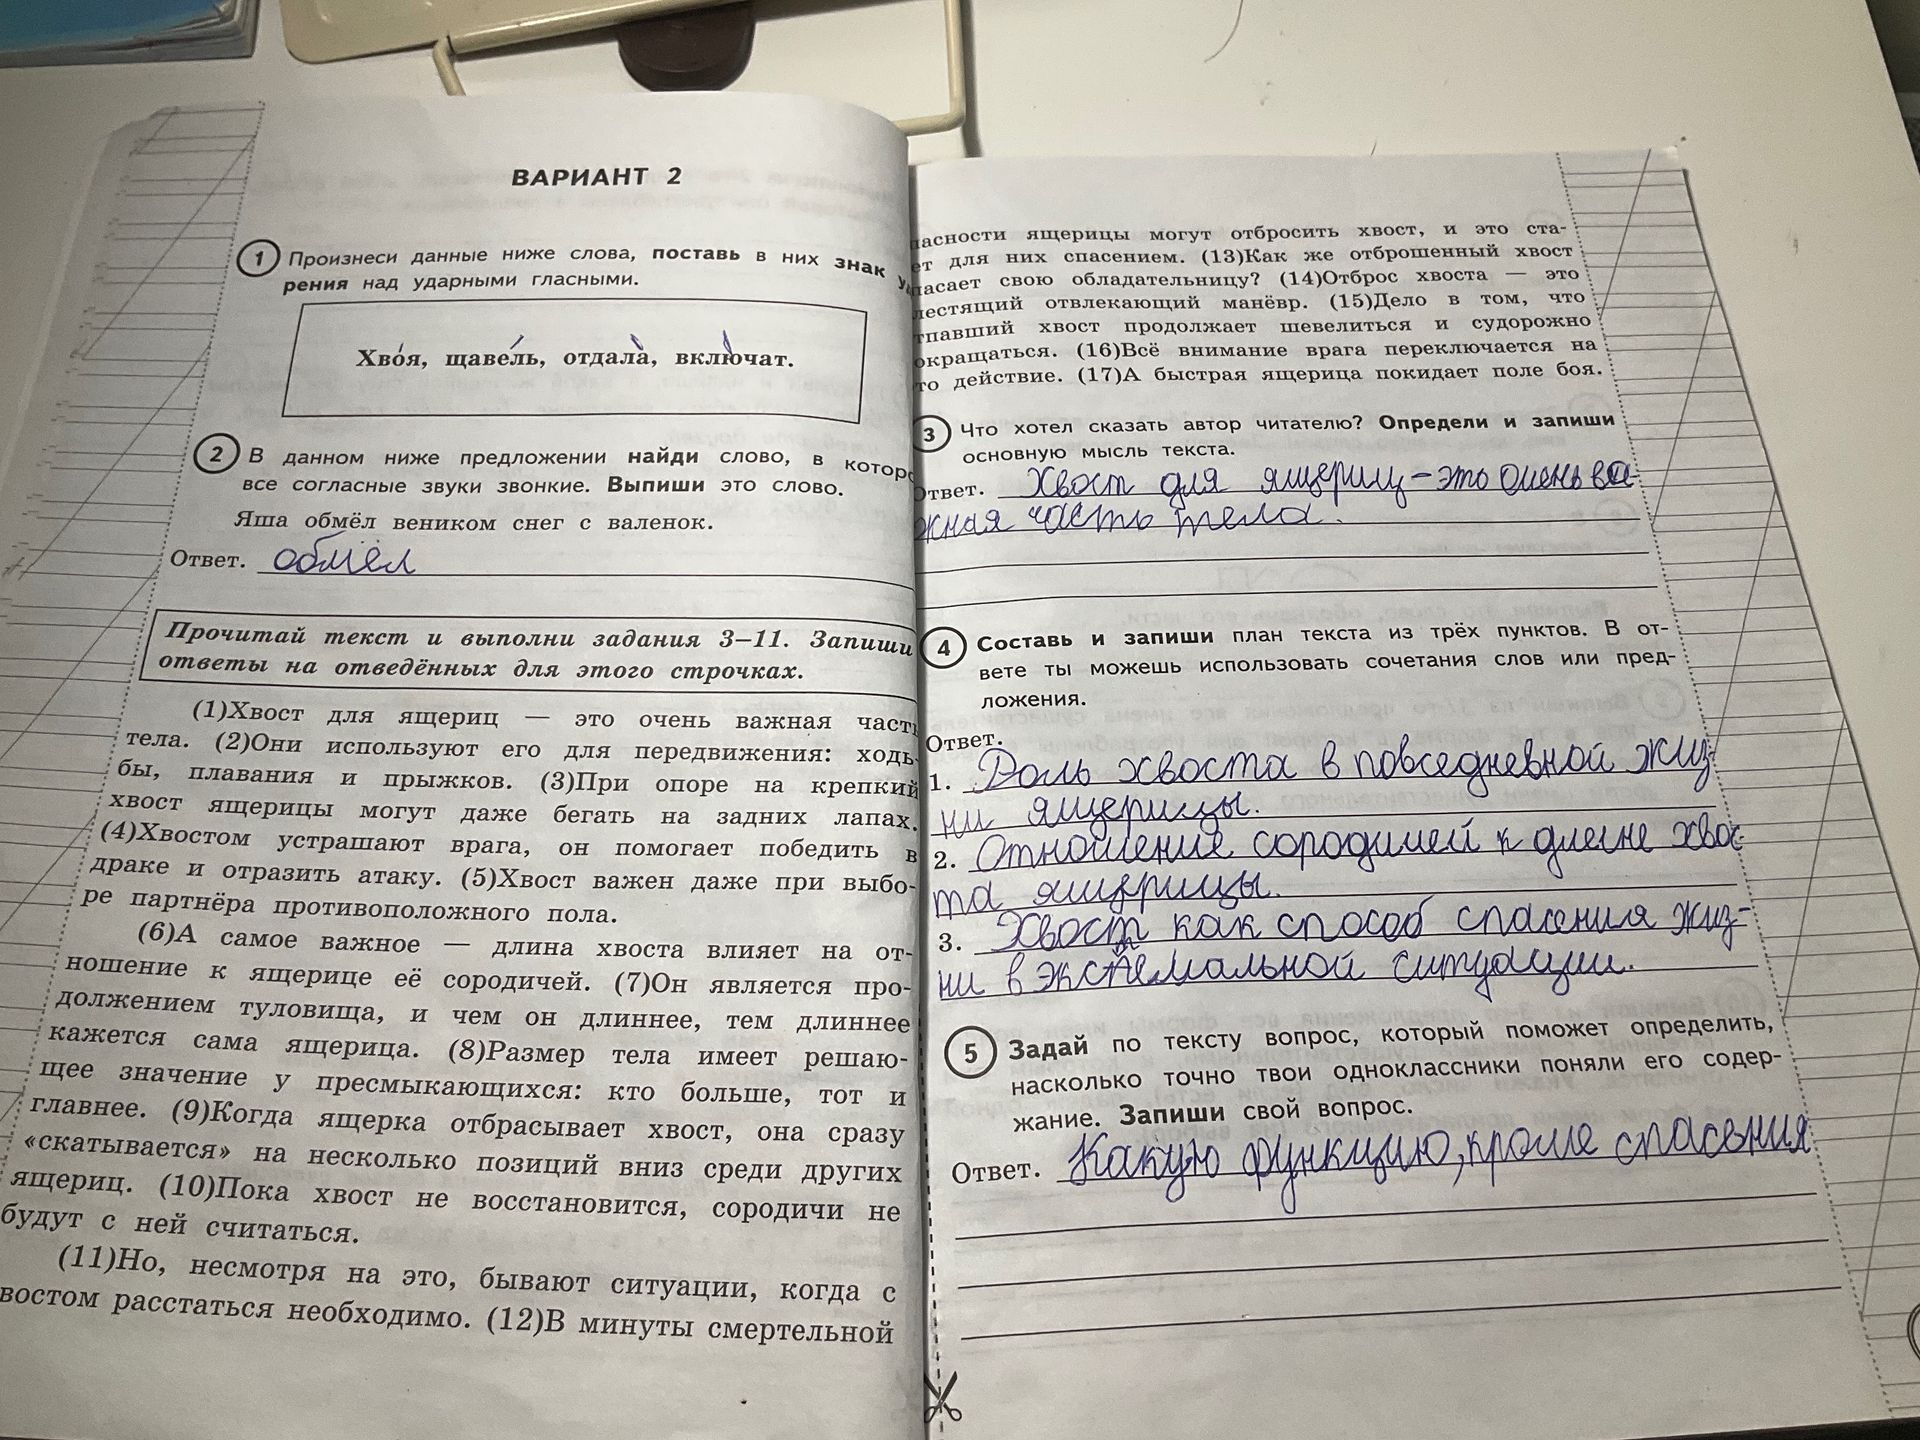 ВАРИАНТ 2
1 Произнеси данные ниже слова, поставь в них знак
рения над ударными гласными.
Хво́я, щаве́ль, отдала́, включа́т.
2 В данном ниже предложении найди слово, в которо
все согласные звуки звонкие. Выпиши это слово.
Яша обмёл веником снег с валенок.
Ответ. обмёл
Прочитай текст и выполни задания 3–11. Запиши
ответы на отведённых для этого строчках.
(1)Хвост для ящериц — это очень важная часть
тела. (2)Они используют его для передвижения: ходь-
бы, плавания и прыжков. (3)При опоре на крепкий
хвост ящерицы могут даже бегать на задних лапах.
(4)Хвостом устрашают врага, он помогает победить в
драке и отразить атаку. (5)Хвост важен даже при выбо-
ре партнёра противоположного пола.
(6)А самое важное — длина хвоста влияет на от-
ношение к ящерице её сородичей. (7)Он является про-
должением туловища, и чем он длиннее, тем длиннее
кажется сама ящерица. (8)Размер тела имеет решаю-
щее значение у пресмыкающихся: кто больше, тот и
главнее. (9)Когда ящерка отбрасывает хвост, она сразу
«скатывается» на несколько позиций вниз среди других
ящериц. (10)Пока хвост не восстановится, сородичи не
будут с ней считаться.
(11)Но, несмотря на это, бывают ситуации, когда с
востом расстаться необходимо. (12)В минуты смертельной
пасности ящерицы могут отбросить хвост, и это ста-
ет для них спасением. (13)Как же отброшенный хвост
пасает свою обладательницу? (14)Отброс хвоста — это
лестящий отвлекающий манёвр. (15)Дело в том, что
тпавший хвост продолжает шевелиться и судорожно
окращаться. (16)Всё внимание врага переключается на
то действие. (17)А быстрая ящерица покидает поле боя.
3 Что хотел сказать автор читателю? Определи и запиши
основную мысль текста.
Ответ. Хвост для ящериц – это очень ва-
жная часть тела.
4 Составь и запиши план текста из трёх пунктов. В от-
вете ты можешь использовать сочетания слов или пред-
ложения.
Ответ.
1. Роль хвоста в повседневной жиз-
ни ящерицы.
2. Отношение сородичей к длине хвос-
та ящерицы.
3. Хвост как способ спасения жиз-
ни в экстремальной ситуации.
5 Задай по тексту вопрос, который поможет определить,
насколько точно твои одноклассники поняли его содер-
жание. Запиши свой вопрос.
Ответ. Какую функцию, кроме спасения